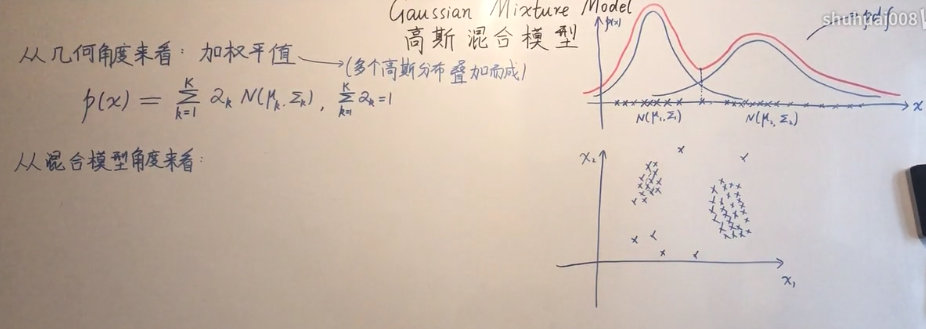 Gaussian Mixture Model
高斯混合模型
从几何角度来看: 加权平值
(多个高斯分布叠加而成)
p(x) = \sum_{k=1}^{K} α_k N(μ_k, Σ_k), \sum_{k=1}^{K} α_k = 1
从混合模型角度来看:
p(x)
pdf
shuhuai008
x
N(μ₁, Σ₁)
N(μ₂, Σ₂)
x₂
x₁